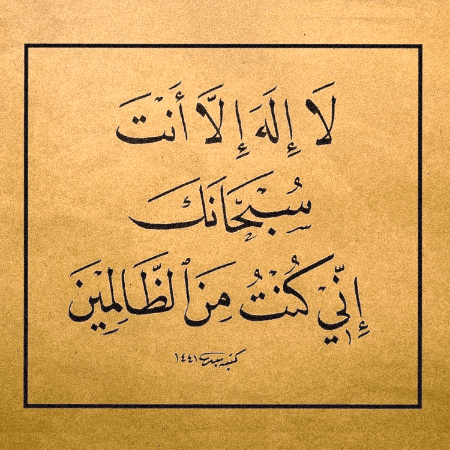 لَا إِلَهَ إِلَّا أَنْتَ
سُبْحَانَكَ
إِنِّي كُنْتُ مِنَ ٱلظَّالِمِيْنَ
كتبه ١٤٤١